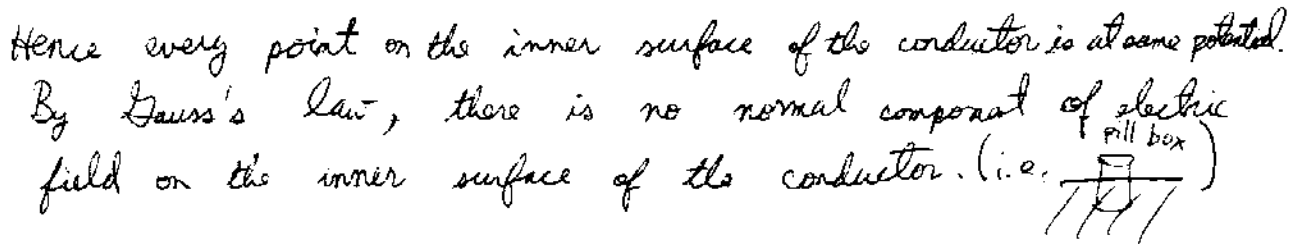 Hence every point on the inner surface of the conductor is at same potential.
By Gauss's law, there is no normal component of electric
pill box
field on the inner surface of the conductor. (i.e. )